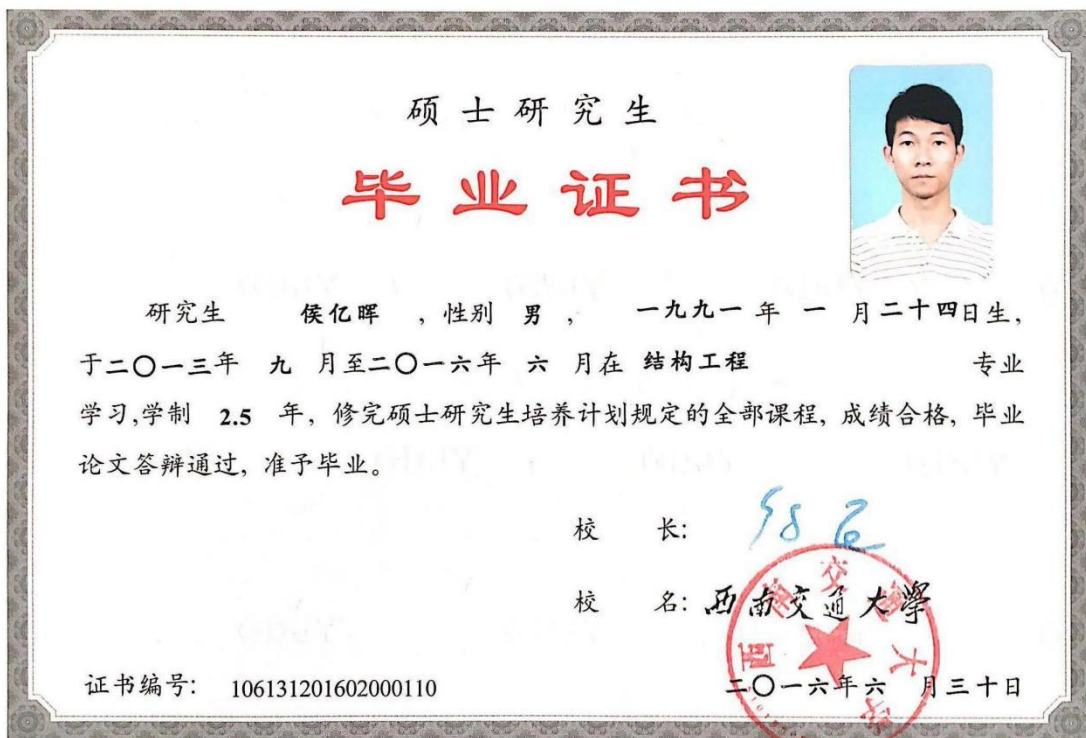 硕士研究生
毕业证书
研究生 侯亿晖 ，性别 男 ， 一九九一 年 一 月二十四日生，
于二〇一三年 九 月至二〇一六年 六 月在 结构工程 专业
学习,学制 2.5 年，修完硕士研究生培养计划规定的全部课程，成绩合格，毕业
论文答辩通过，准予毕业。
校 长：
校 名：西南交通大學
证书编号： 106131201602000110
二〇一六年六 月三十日
西南交通大学